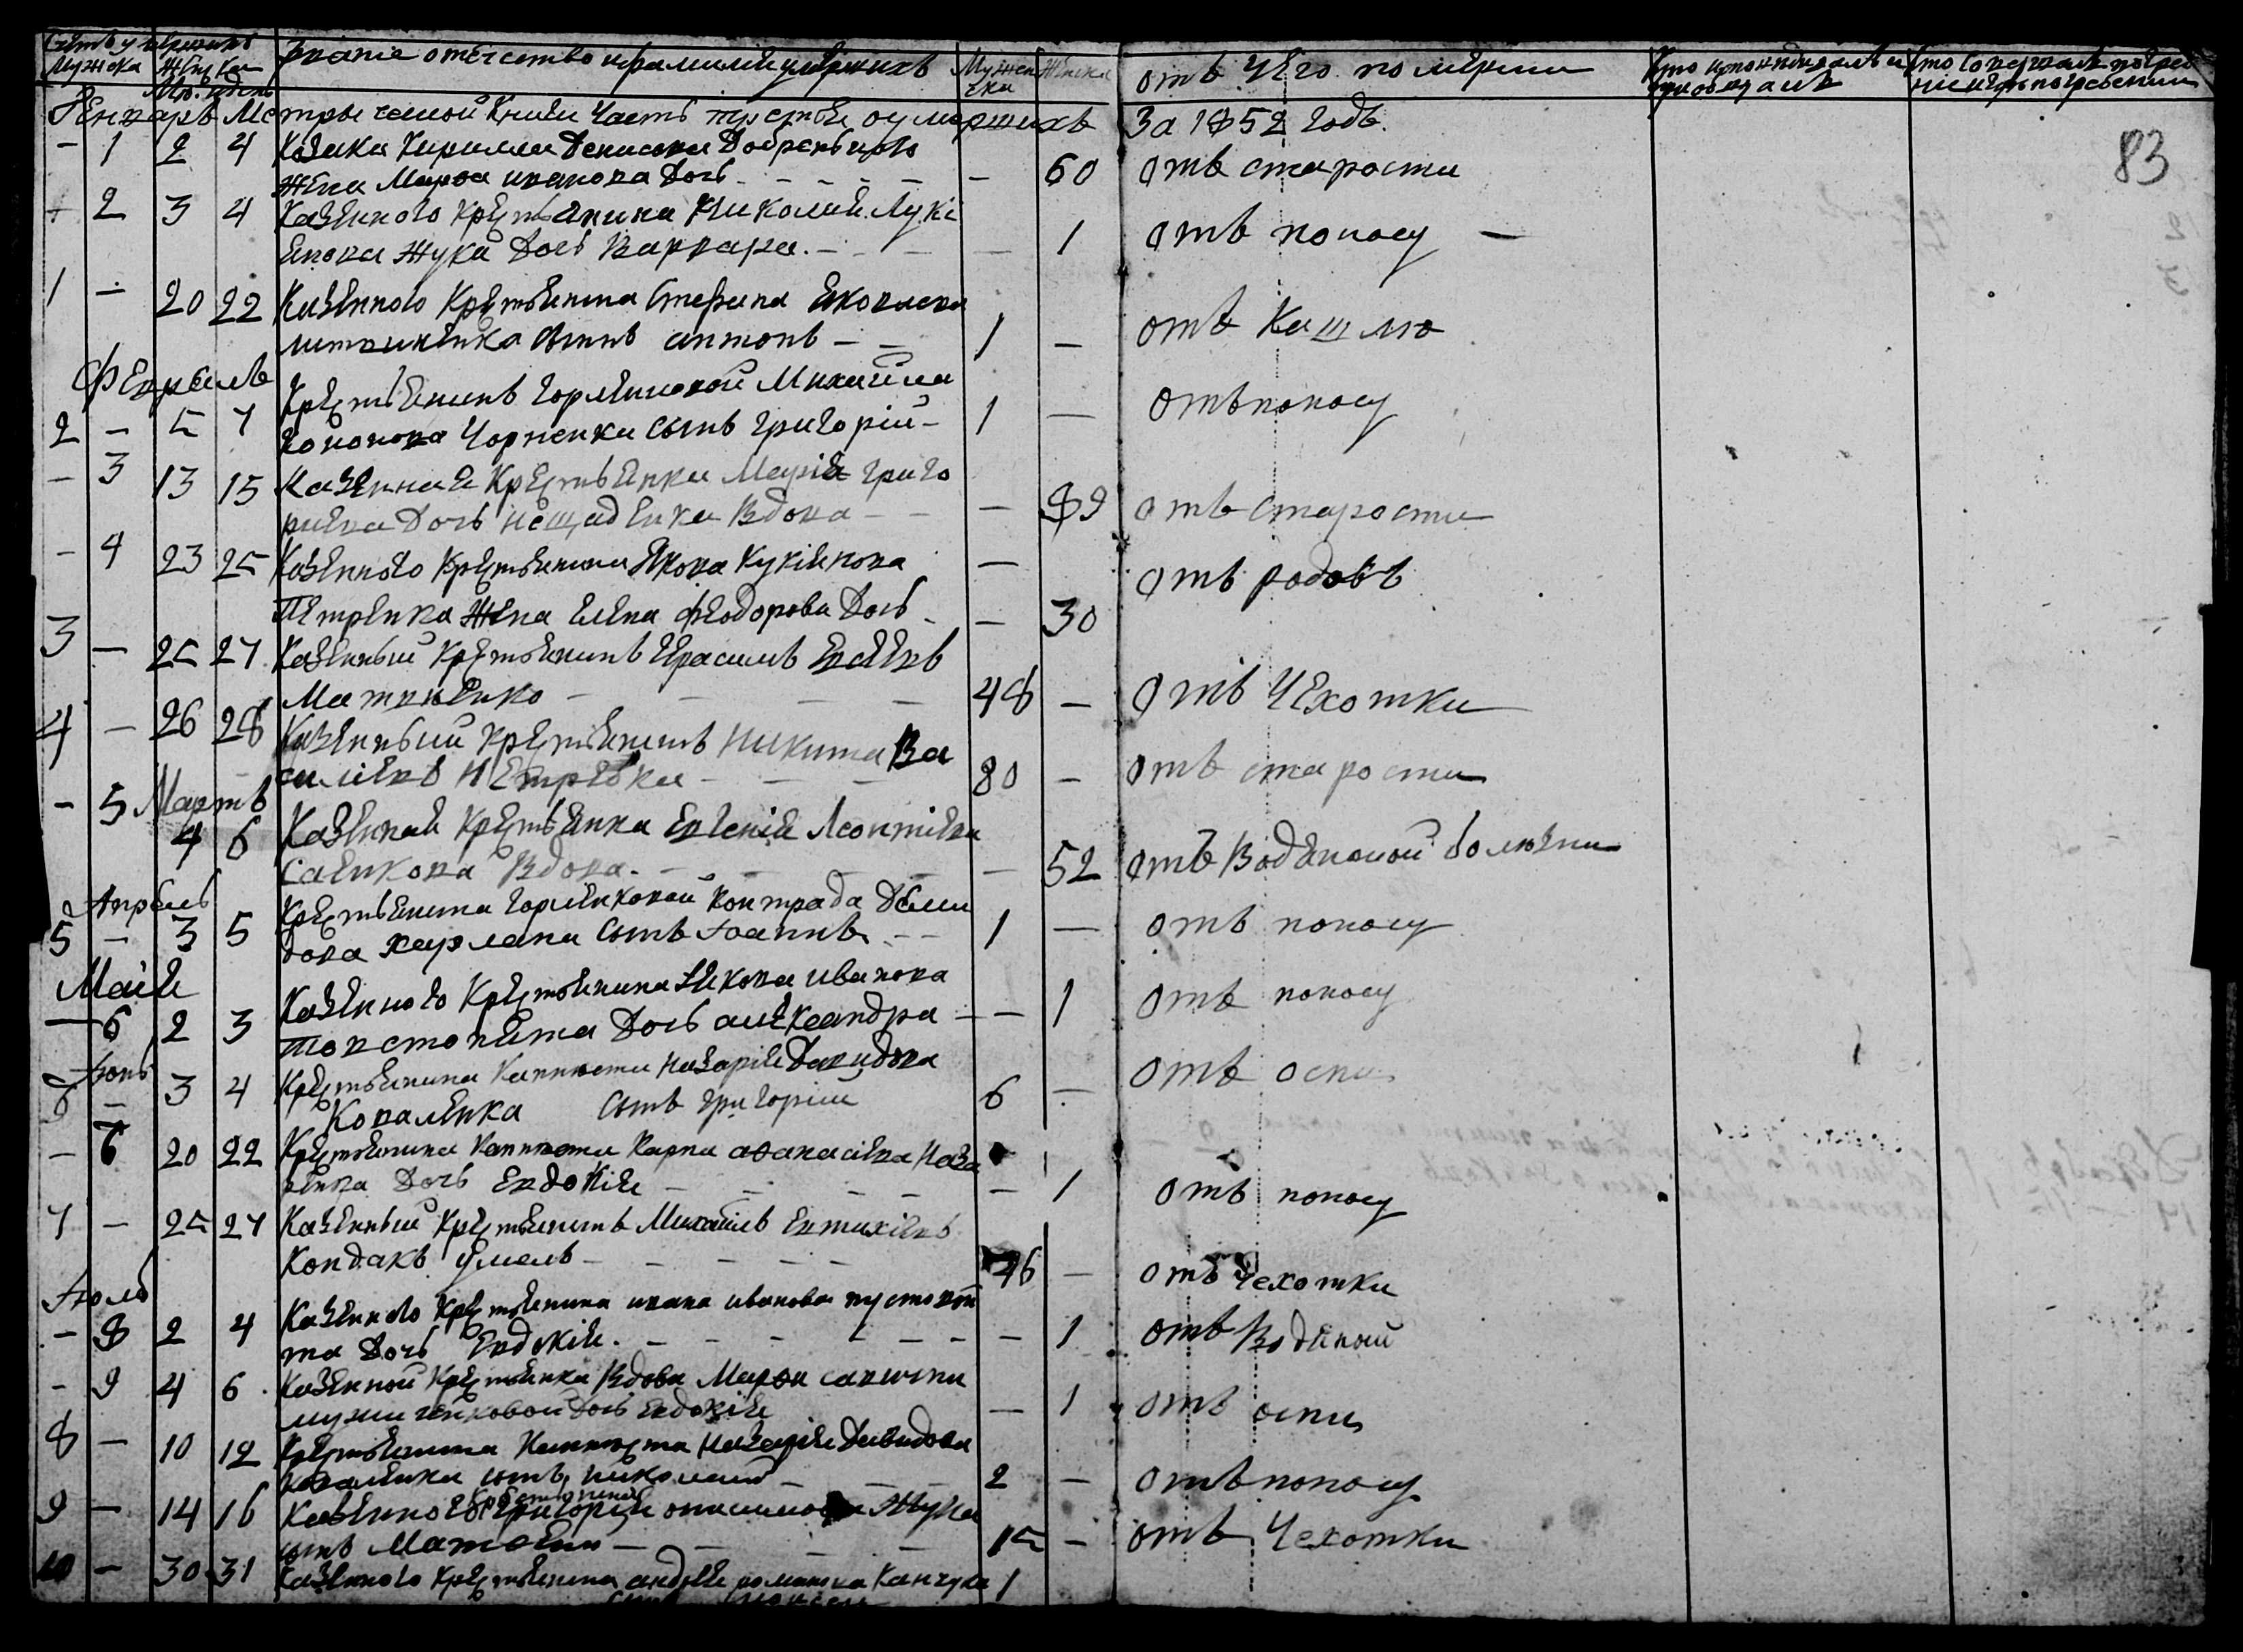 Счетъ умершихъ
Мужска Женска
Мѣ. и день
Званіе отечество и фамилия умершихъ
Мужеска Женска
отъ чего померли
Кто исповѣдовалъ и
Кто совершалъ погребе
ніе и где погребены
Генваръ Метрической Книги Часть третья о умершихъ За 1852 годъ.
83
- 1 2 4 Козака Кирилла Денисова Добренького
жена Марфа иванова дочь - 60 отъ старости
- 2 3 4 Казенного Крестьянина Николая Луки
янова Жука дочь Варвара. - 1 отъ поносу
1 - 20 22 Казенного Крестьянина Стефана Яковлева
Литвиненка сынъ антонъ 1 - отъ Кашлю
Февраль
Крестьянинъ Горленковой Михайла
2 - 5 7 Кононова Чорненка сынъ григорій 1 - отъ поносу
- 3 13 15 Казенная Крестьянка Марія григо
риева дочь Нещаденка Вдова - 89 отъ старости
- 4 23 25 Казенного Крестьянина Якова Лукіянова -
Петренка жена Елена феодорова дочь - 30 отъ родовъ
3 - 25 27 Казенный Крестьянинъ Герасимъ Евсѣевъ
Матвѣенко 48 - отъ Чехотки
4 - 26 28 Казенный Крестьянинъ Никита Ва
сильевъ Петренка 80 - отъ старости
Мартъ
- 5 4 6 Казенная Крестьянка Евгенія Леонтіева
Саенкова Вдова. - 52 отъ Водяной болезни
Апрѣль
Крестьянина Горленковой Контрада Деми
5 - 3 5 дова Харлана сынъ Іоаннъ 1 - отъ поносу
Маія
Казенного Крестьянина Якова иванова
- 6 2 3 Товстопята дочь александра - 1 отъ поносу
Іюнь
6 - 3 4 Крестьянина Капниста Назарія Давидова
Коваленка сынъ григорій 6 - отъ оспи
- 7 20 22 Крестьянина Капниста Карпа афанасіева Наза
ренка дочь Евдокія - 1 отъ поносу
7 - 25 27 Казенный Крестьянинъ Михаилъ Евтихіевъ
Кондакъ умелъ 76 - отъ Чехотки
Іюль
Казенного Крестьянина ивана иванова пустовой
- 8 2 4 та дочь Евдокія. - 1 отъ Водяной
- 9 4 6 Казенной Крестьянки Вдовы Марфи савишни
дочь Евдокія - 1 отъ оспи
8 - 10 12 Крестьянина Капниста Назарія Давидова
Коваленка сынъ николай 2 - отъ поносу
9 - 14 16 Казенного Крестьянина Григорія онисимова Жука
сынъ Матфей 15 - отъ Чехотки
10 - 30 31 Казенного Крестьянина андрѣя романова Канчука 1